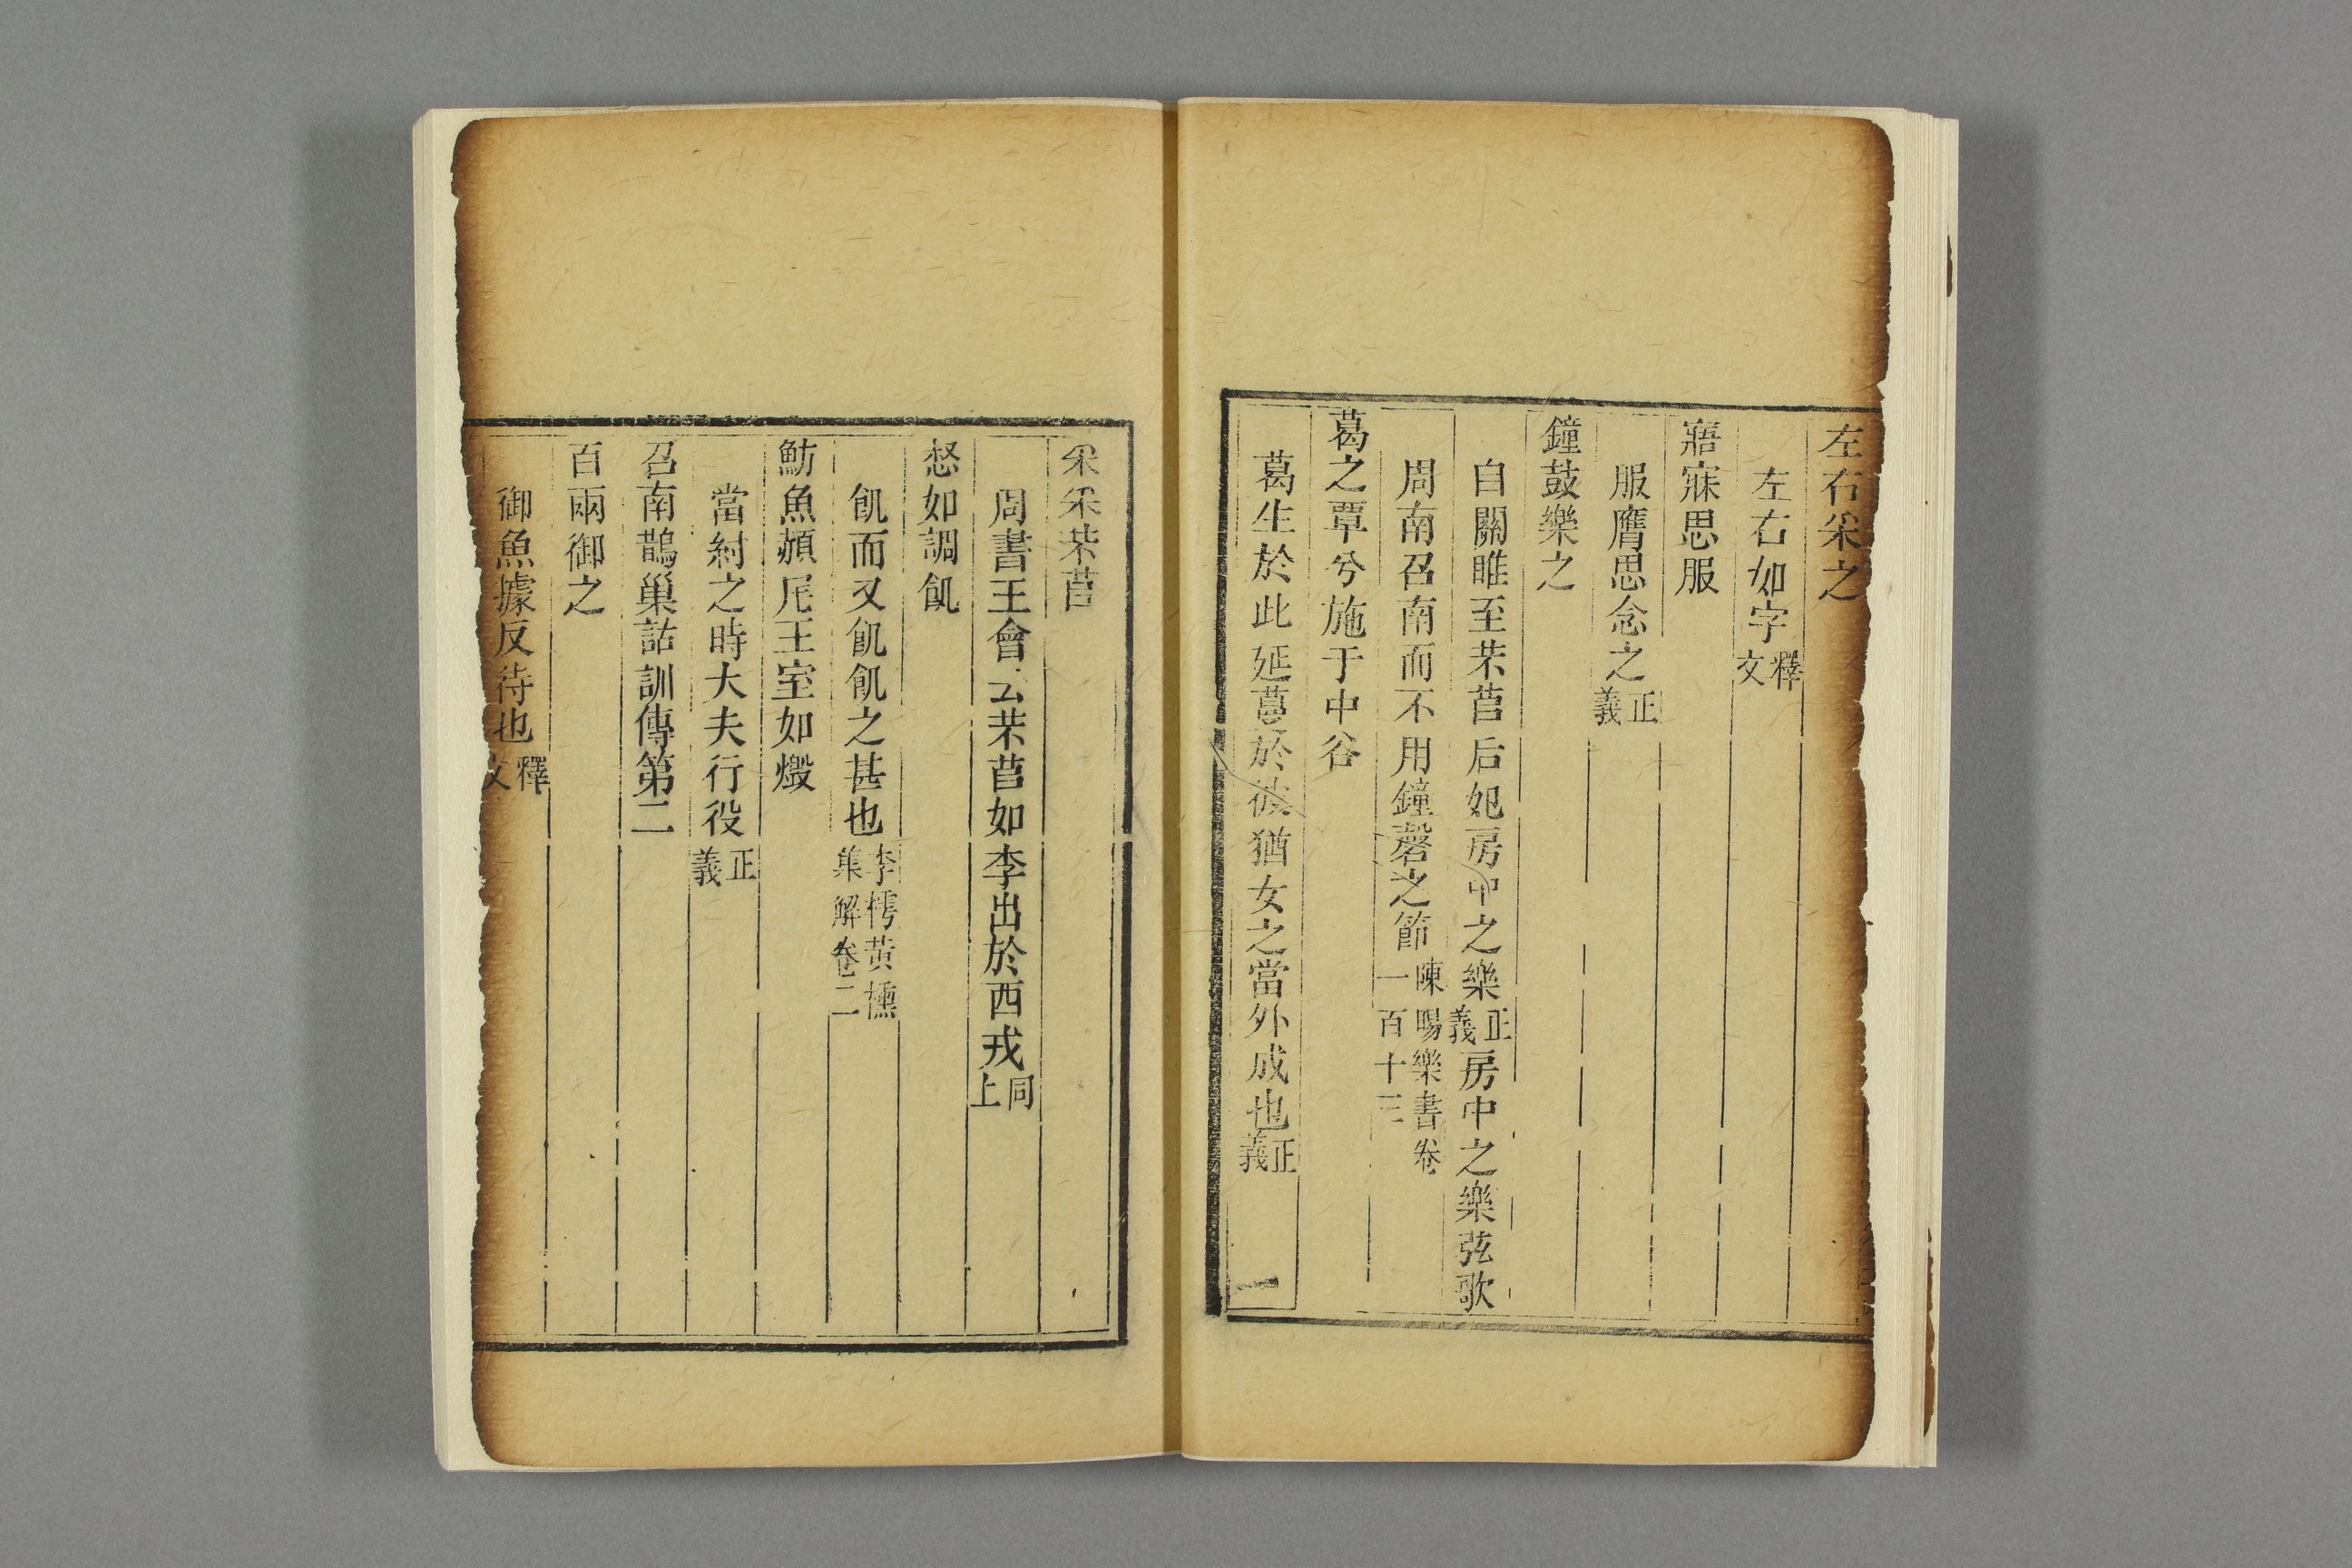 左右采之
左右如字釋文
寤寐思服
服膺思念之正義
鐘鼓樂之
自關睢至芣苢后妃房中之樂正義房中之樂弦歌
周南召南而不用鐘磬之節陳暘樂書卷一百十三
葛之覃兮施于中谷
葛生於此延蔓於彼猶女之當外成也正義
一
采采芣苢
周書王會云芣苢如李出於西戎同上
惄如調飢
飢而又飢飢之甚也李樗黃櫄集解卷二
魴魚赬尾王室如燬
當紂之時大夫行役正義
召南鵲巢詁訓傳第二
百兩御之
御魚據反待也釋文